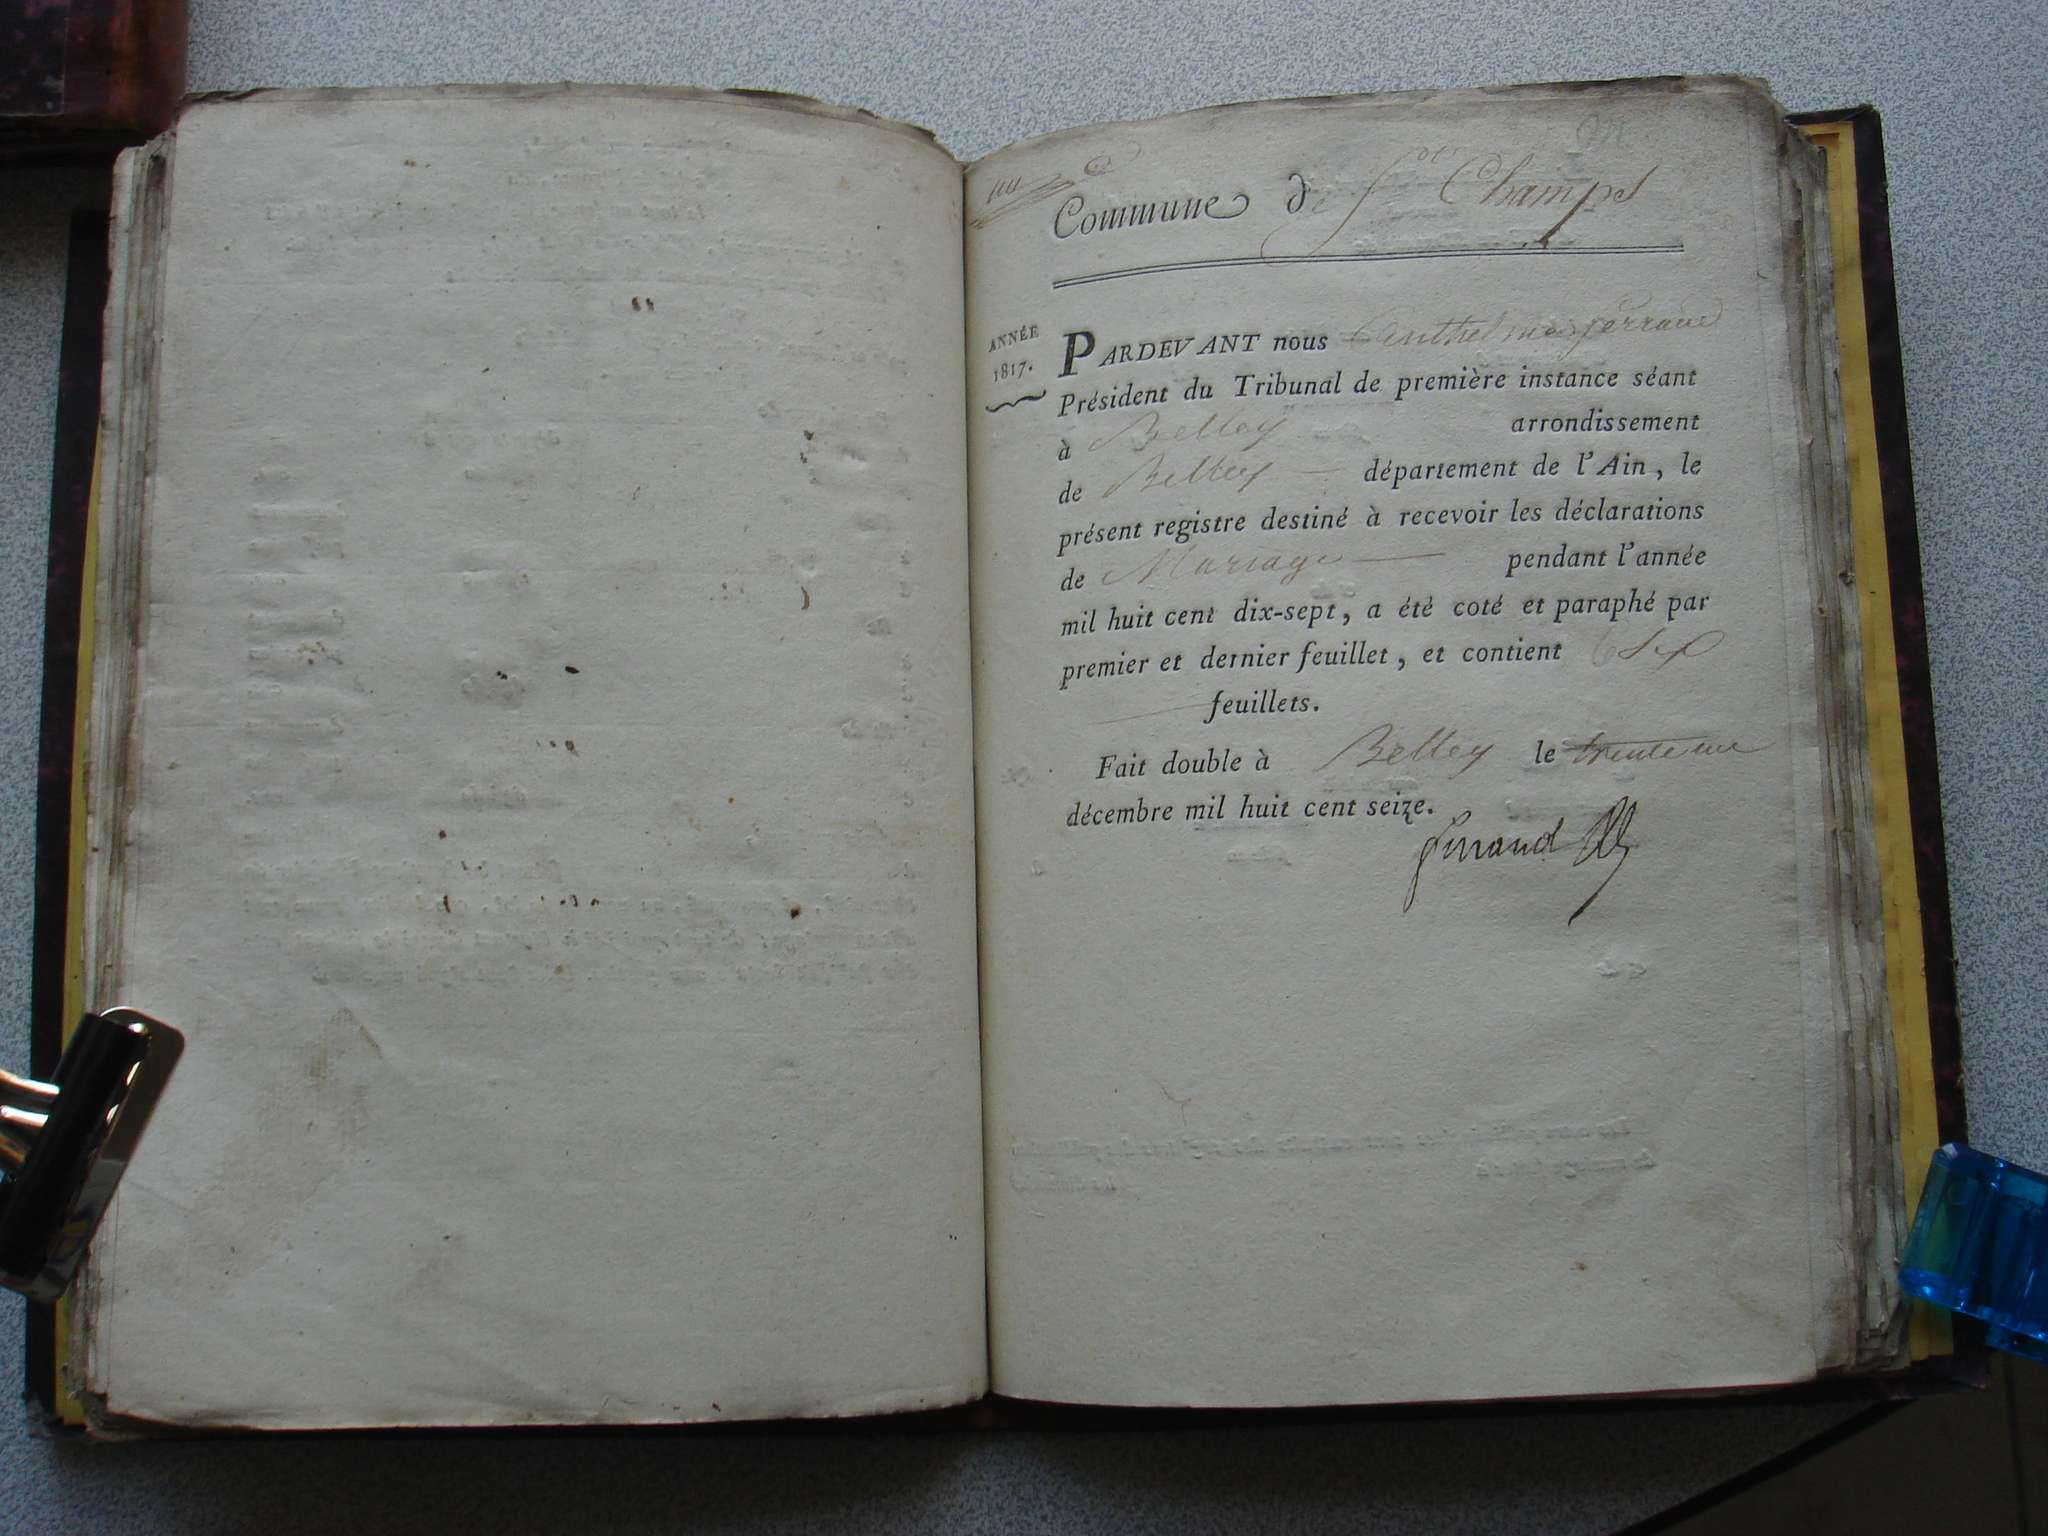 un
Commune de St Champs
ANNÉE
1817.
PARDEVANT nous Anthelme ferrand
Président du Tribunal de première instance séant
à Belley arrondissement
de Belley département de l'Ain, le
présent registre destiné à recevoir les déclarations
de Mariage pendant l'année
mil huit cent dix-sept, a été coté et paraphé par
premier et dernier feuillet, et contient Six
feuillets.
Fait double à Belley le trente un
décembre mil huit cent seize.
ferrand